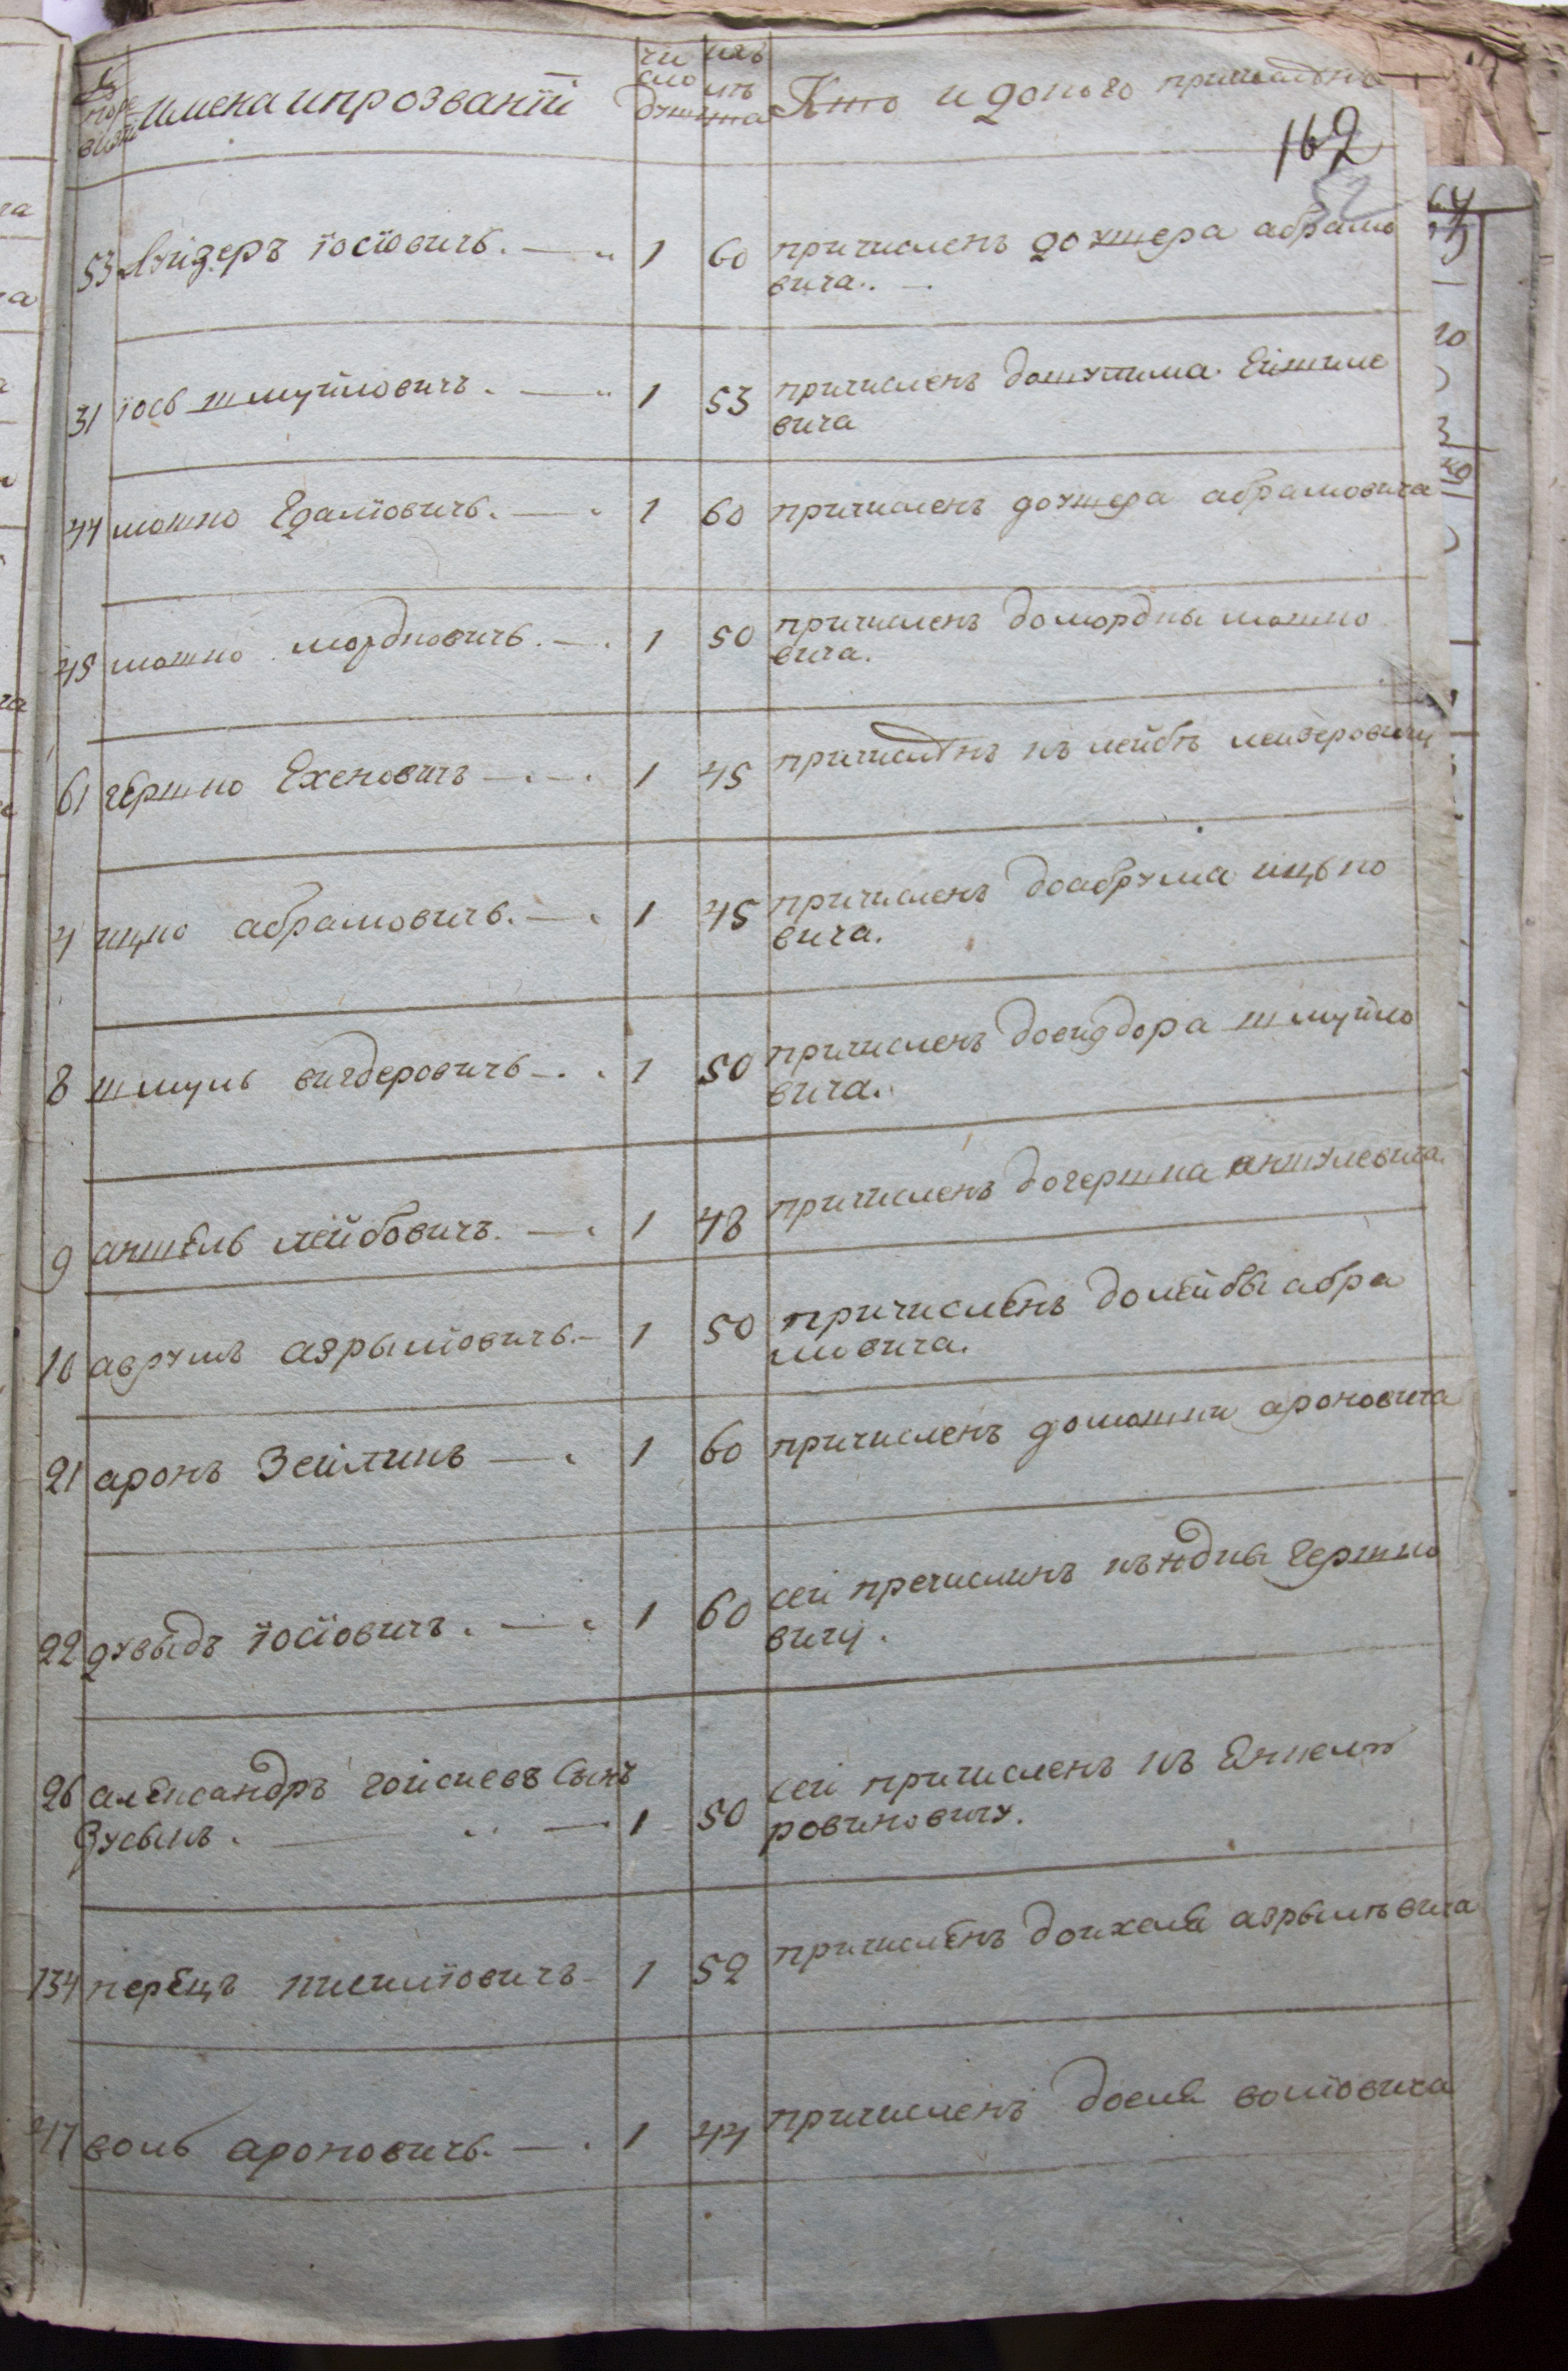 имена ипрозваніи
число душъ
имъ лѣтъ
Кто и докого причисленъ
162
53 Лейзеръ іосіовичь. 1 60 причисленъ доушера абрамо
вича.
31 іось шмуйловичъ. 1 53 причисленъ
вича
44 мошко 1 60 причисленъ доушера абрамовича
45 мошко мордковичь. 1 50 причисленъ домордки мошко
вича.
61 гершко Ехеновичъ 1 45 причисленъ къ лейбѣ лейзеровичу
4 ицко абрамовичь. 1 45 причисленъ доабрума ицько
вича.
8 шмуль вигдеровичь 1 50 причисленъ довигдора шмуйло
вича.
9 аншель лейбовичъ. 1 48 причисленъ догершка аншулевича.
10 аврумъ азрыліовичь. 1 50 причисленъ долейбы абра
мовича.
21 аронъ Зейлинъ 1 60 причисленъ домошки ароновича
22 дувыдъ іосіовичъ. 1 60 сей пречислинъ къ юдки гершко
вичу.
26 александръ гойсиевъ Сынъ
Зусынъ. 1 50 сей причисленъ къ Енкелю
ровиновичу.
134 перецъ 1 52 причисленъ доихеля азрылевича
47 воль ароновичь. 1 44 причисленъ доеля воліовича